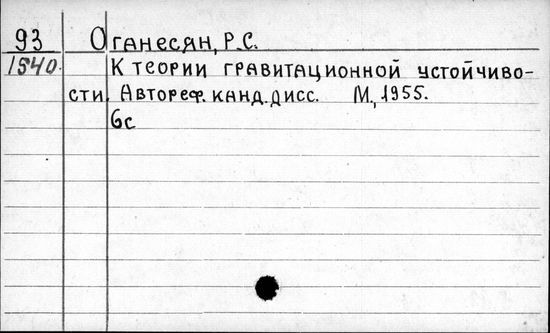 93 Оганесян, Р.С.
1540. К теории гравитационной устойчиво-
сти. Автореф. канд. дисс. М., 1955.
6с